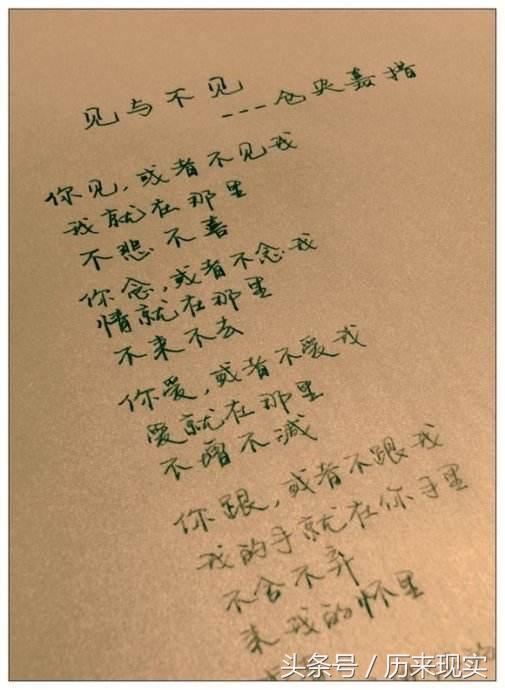 见与不见
---仓央嘉措
你见,或者不见我
我就在那里
不悲不喜
你念,或者不念我
情就在那里
不来不去
你爱,或者不爱我
爱就在那里
不增不减
你跟,或者不跟我
我的手就在你手里
不舍不弃
来我的怀里
头条号/历来现实